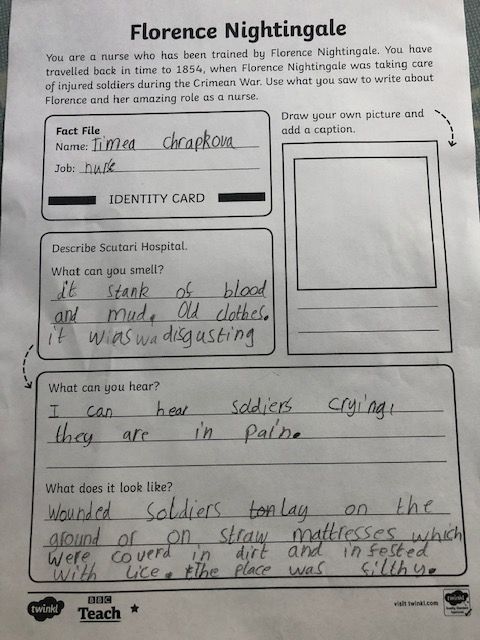 Florence Nightingale
You are a nurse who has been trained by Florence Nightingale. You have
travelled back in time to 1854, when Florence Nightingale was taking care
of injured soldiers during the Crimean War. Use what you saw to write about
Florence and her amazing role as a nurse.
Fact File
Name: Timea Chrapkova
Job: nurse
IDENTITY CARD
Draw your own picture and
add a caption.
Describe Scutari Hospital.
What can you smell?
it stank of blood
and mud. Old clothes.
it was disgusting
What can you hear?
I can hear soldiers crying,
they are in pain.
What does it look like?
Wounded soldiers lay on the
ground or on straw mattresses which
were coverd in dirt and infested
with lice. the place was filthy.
twinkl
BBC
Teach
visit twinkl.com